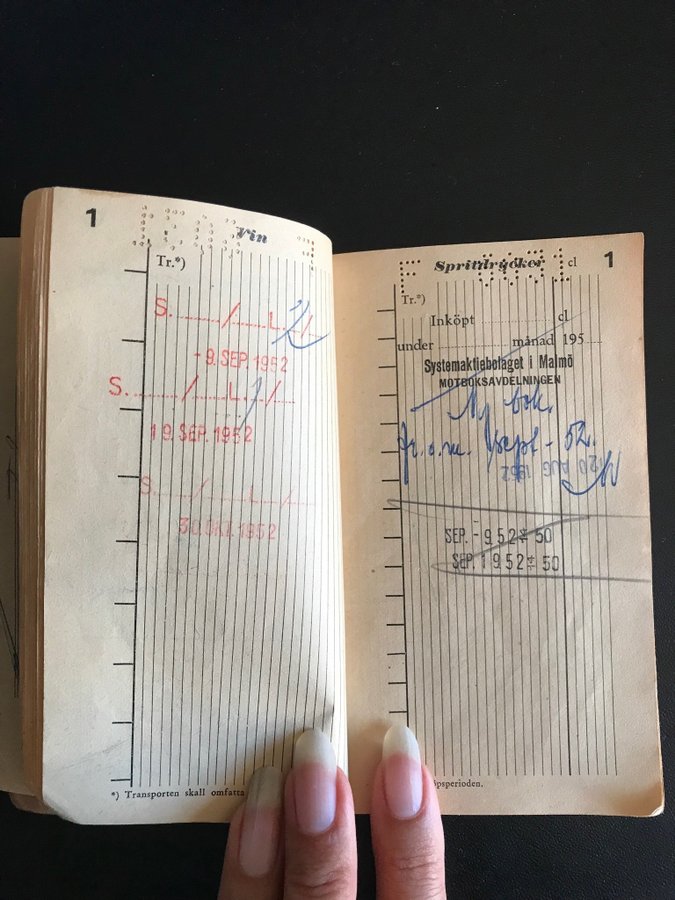 1
Vin
Tr.*)
S. / L. /
- 9. SEP. 1952
S. / L. /
19. SEP. 1952
S. / L. /
30. OKT. 1952
*) Transporten skall omfatta
Spritdrycker cl 1
Tr.*)
Inköpt cl
under månad 195
Systemaktiebolaget i Malmö
MOTBOKSAVDELNINGEN
Ny bok.
fr.o.m. sept - 52.
20 AUG 1952
SEP. - 9 52 50
SEP. 19 52 50
öpsperioden.